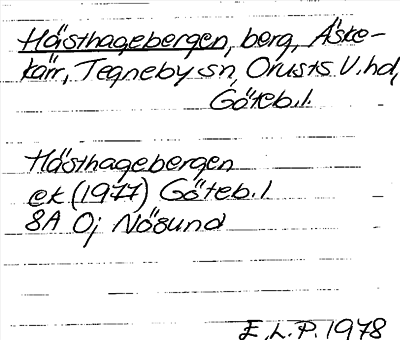 Hästhagebergen, berg, Äske-
kärr, Tegneby sn, Orusts V. hd,
Göteb. l.
Hästhagebergen
ek (1977) Göteb. l
8A Oj Nösund
E. L. P. 1978